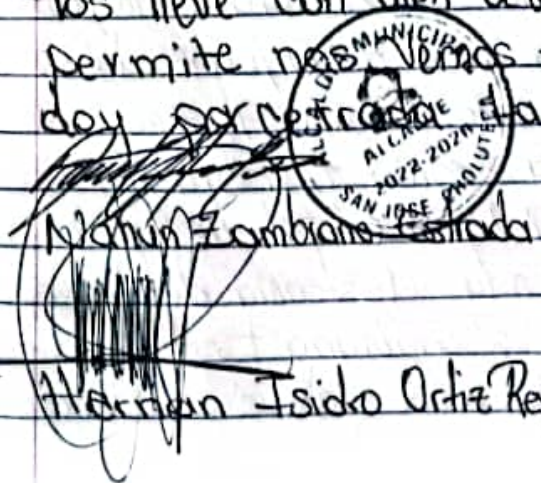 los lleve con bien
permite nos vemos
doy por cerrada la
ALCALDIA MUNICIPAL
ALCALDE
2022-2026
SAN JOSE CHOLUTECA
Nahun Zambrano Estrada
Hernan Isidro Ortiz